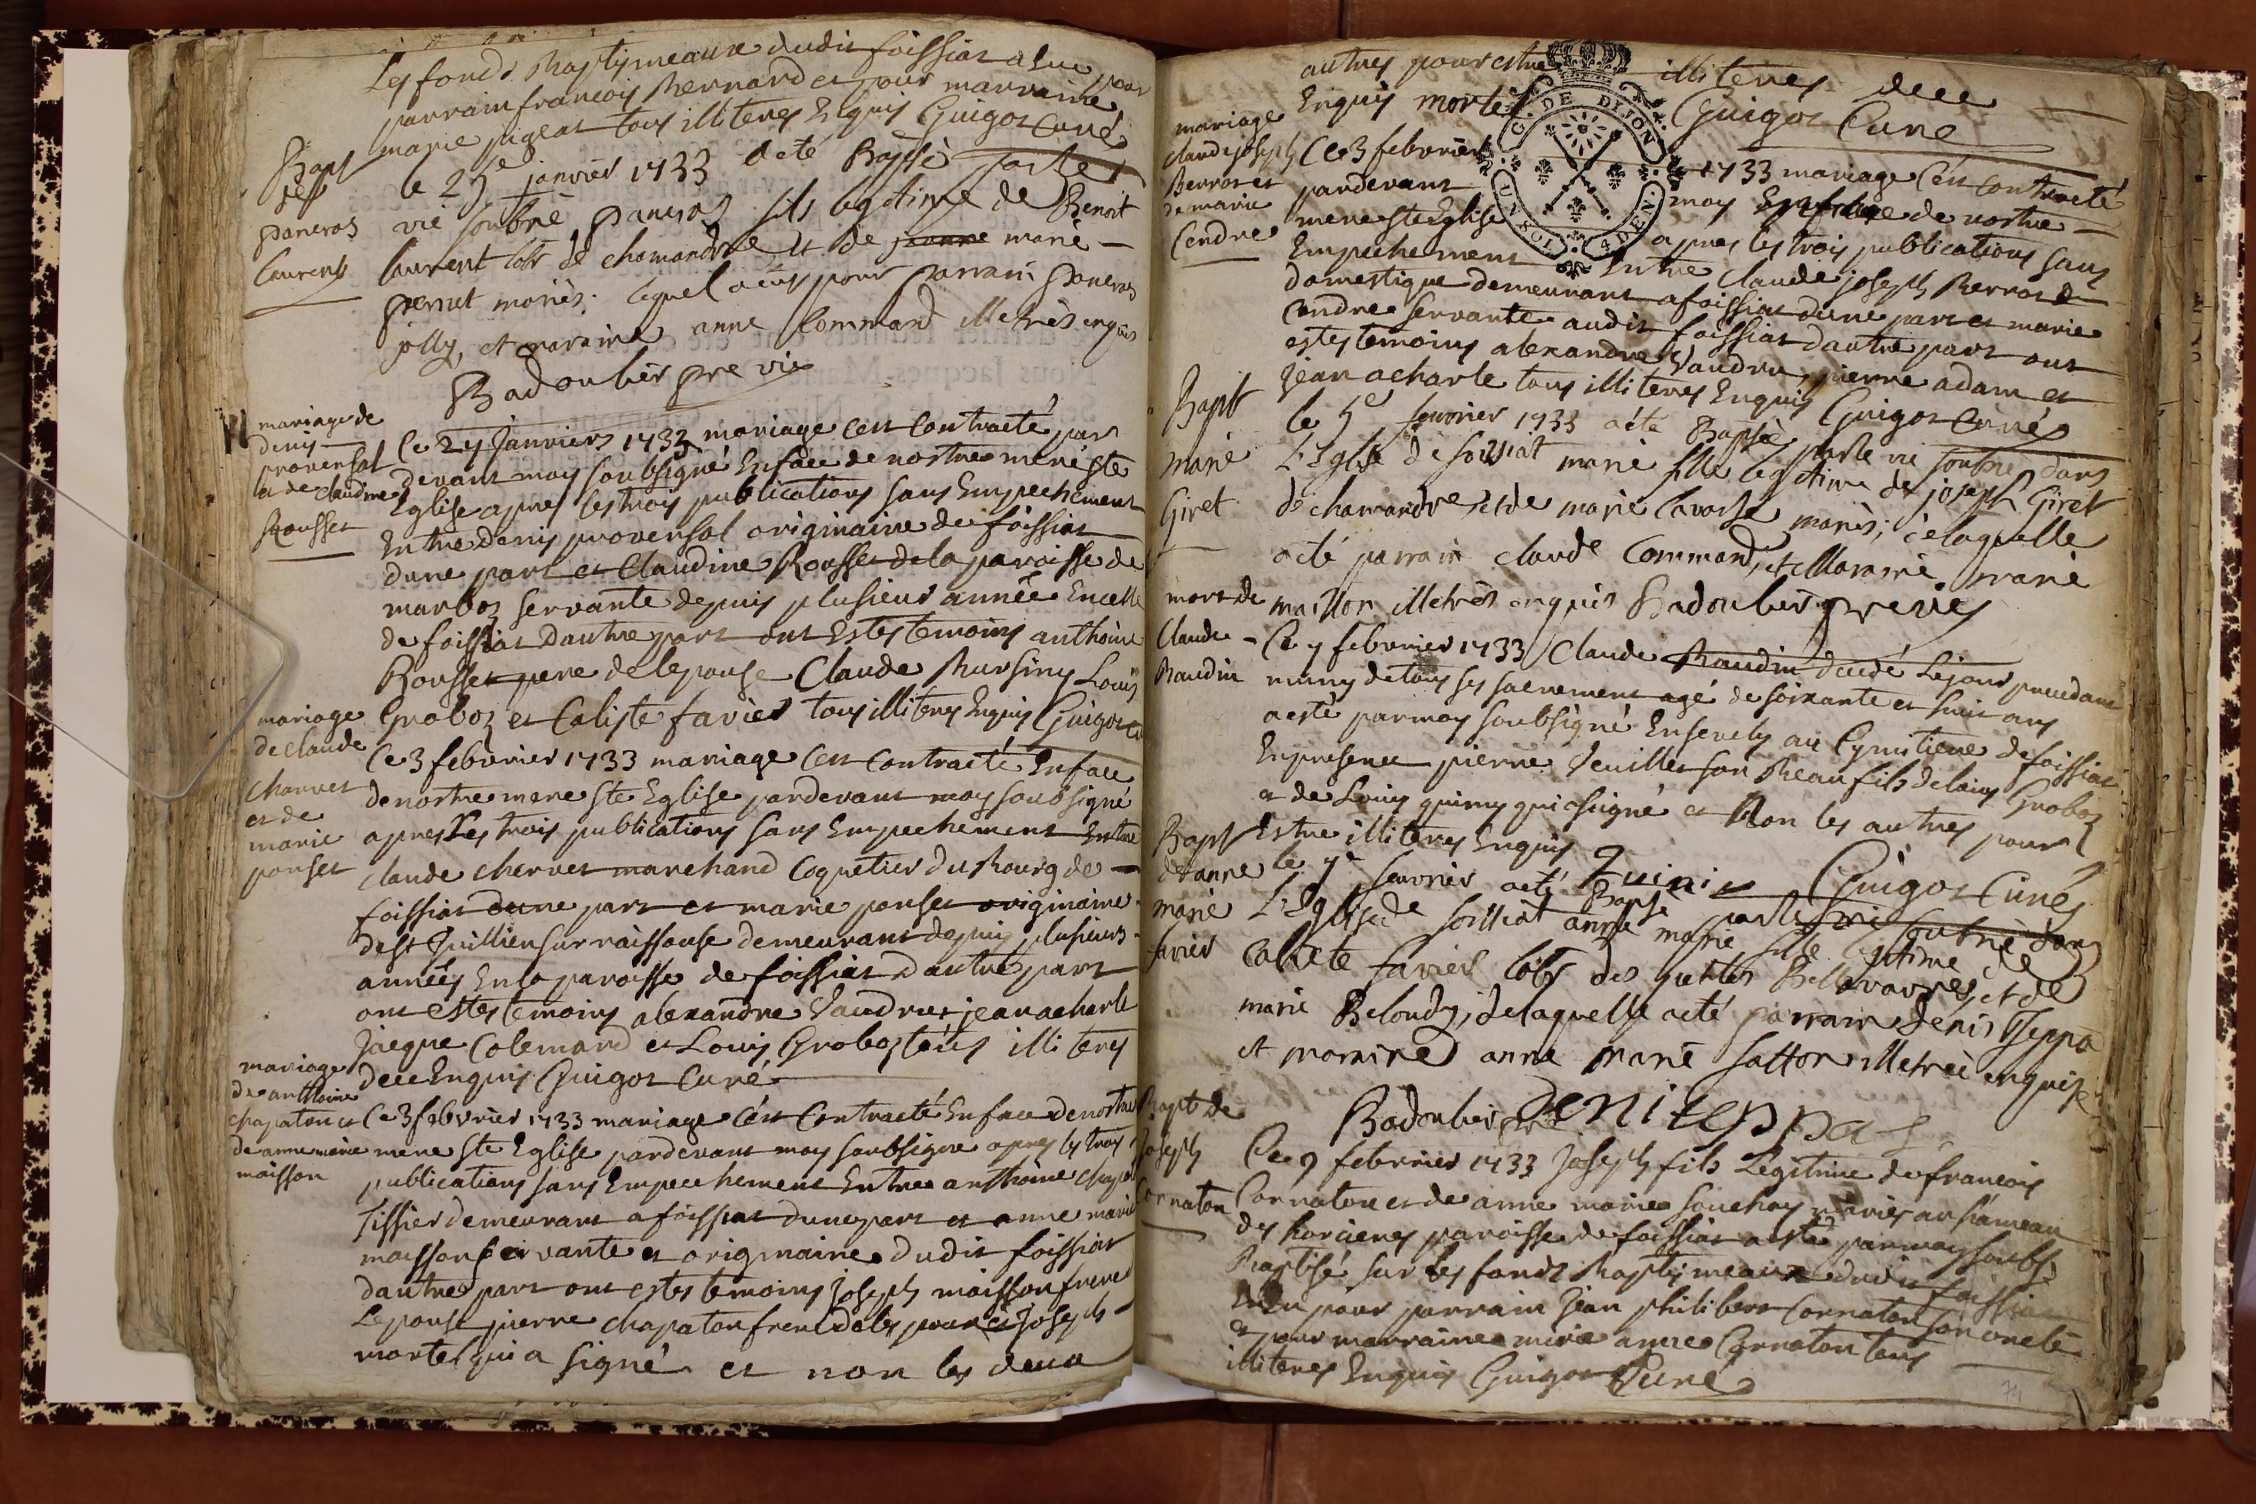 Les fonds Baptismeaux dudit foissiat a Eu pour
parrain francois Bernard et pour marraine
marie pigeat tous illiteres Enquis Guigot Curé
Bapt
de
pancras
Laurent
le 25e janvier 1733 a eté Bapsé par le
vic soubné pancras fils legitime de Benoit
laurent lobr de chamandre et de jeanne marie
perrut mariés. lequel a eu pour parrain pancras
jolly, et maraine anne Command illetrés enquis
Badoulier pre vic
mariage de
denis
provensal
et de claudine
Rousset
Ce 27 Janviers 1733 mariage cest contracté par
devant moy soubsigné En face de nostre mere ste
Eglise apres les trois publications sans Empechement
Entre denis provensal originaire de foissiat
dune part et Claudine Rousset de la paroisse de
marboz servante depuis plusieurs année En celle
de foissiat dautre part ont Estes temoins anthoine
Rousset pere de lepouse Claude Bursiny Louis
Groboz et Caliste favier tous illiteres Enquis Guigot
mariage
de claude
charvet
et de
marie
ponset
Ce 3 febvrier 1733 mariage cest contracté En face
de nostre mere ste Eglise pardevant moy soubsigné
apres les trois publications sans Empechement Entre
claude chervet marchand Coquetier du Bourg de
foissiat dune part et marie ponset originaire
de st Juillien sur raissouse demeurant depuis plusieurs
années En la paroisse de foissiat dautre part
ont estes temoins alexandre Vaudrus jean acharle
Jacque Colemard et Louis Groboz tous illiteres
de ce Enquis Guigot Curé
mariage
de anthoine
chapaton et
de anne marie
maisson
Ce 3 febvrier 1733 mariage cest contracté En face de nostre
mere ste Eglise pardevant moy soubsigné apres les trois
publications sans Empechement Entre anthoine chapaton
tissier demeurant a foissiat dune part et anne marie
maisson servante et originaire dudit foissiat
dautre part ont estes temoins Joseph maisson frere
Lepouse pierre chapaton frere de lepoux et Joseph
mortel qui a signé et non les deux
autres pour estre illiteres de ce
Enquis mortel Guigot Curé
G. DE DIJON
UN SOL 4 DEN.
mariage
claude joseph
Berrot et
de marie
Cendre
Ce 3 febvrier 1733 mariage cest contracté
pardevant moy En face de nostre
mere ste Eglise apres les trois publications sans
Empechement Entre Claude joseph Berrot
domestique demeurant a foissiat dune part et marie
Cendre servante audit foissiat dautre part ont
estes temoins alexandre Vaudru, pierre adam et
Jean acharle tous illiteres Enquis Guigot Curé
Bapt
marie
Giret
le 5e fevrier 1733 a eté Bapsée par le vic soubné dans
L'Eglise de foissiat marie fille legitime de joseph Giret
de chamandre et de marie mariés; de laquelle
a eté parrain claude Command, et Maraine marie
maisson illetrés enquis Badoulier pre vic
mort de
Claude
Baudin
Ce 7 febvrier 1733 Claude Baudin decedé Le jour precedant
muny de tous ses sacrement agé de soixante et huit ans
a esté par moy soubsigné Ensevely au Cymitiere de foissiat
En presence pierre Veuillet son Beau fils de louis Groboz
et de Louis quiny qui a signé et Non les autres pour
Estre illiteres Enquis Quini Guigot Curé
Bapt
d'anne
marie
favier
le 7e fevrier a eté Bapsé par le vic soubné dans
L'Eglise de foissiat anne marie fille legitime de
Calixte favier lobr des et de
marie Beloudy; de laquelle a eté parrain denis Teppa
et maraine anne marie sotton illetrée enquise
Badoulier pre deniteppa
Bapt de
Joseph
Cornaton
Ce 9 febvrier 1733 Joseph fils Legitime de francois
Cornaton et de anne marie souchay mariés au hameau
des paroisse de foissiat a esté par moy soubs
Baptisé sur les fonds Baptismeaux dudit foissiat
a Eu pour parrain Jean philibert Cornaton son oncle
et pour marraine marie anne Cornaton tous
illiteres Enquis Guigot Curé